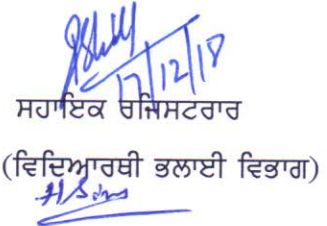 17/12/18
ਸਹਾਇਕ ਰਜਿਸਟਰਾਰ
(ਵਿਦਿਆਰਥੀ ਭਲਾਈ ਵਿਭਾਗ)